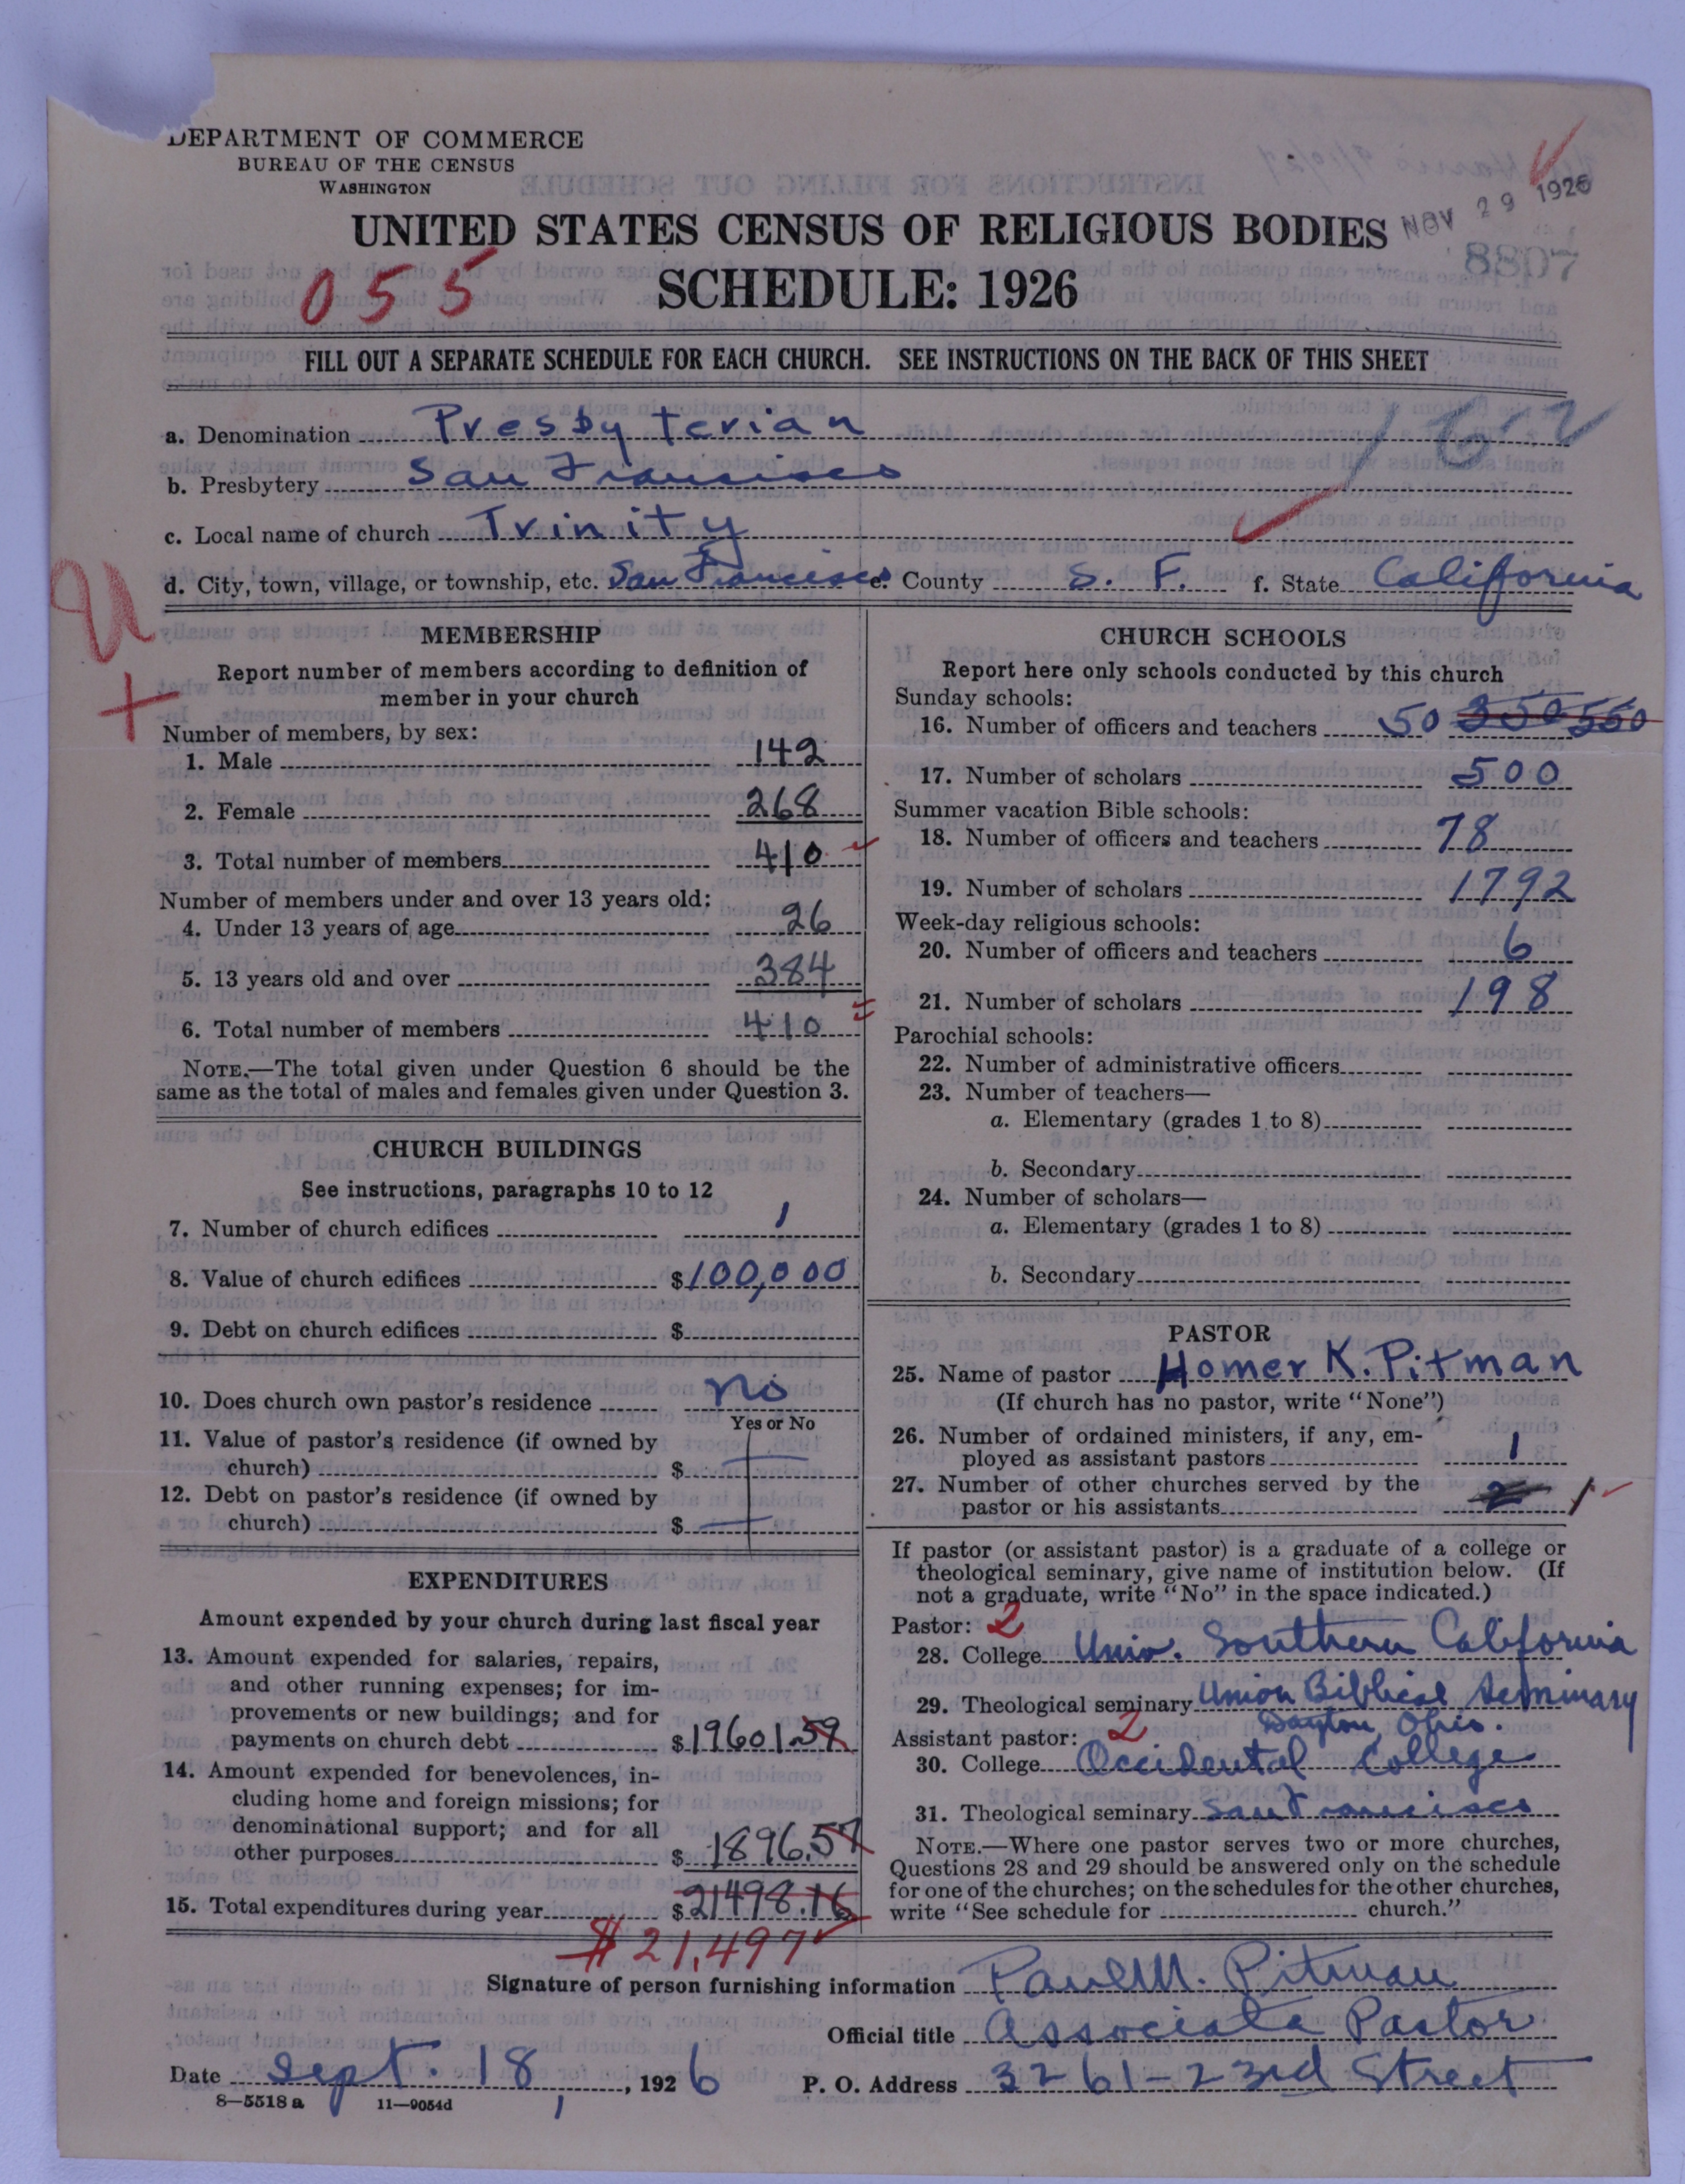 DEPARTMENT OF COMMERCE
BUREAU OF THE CENSUS
WASHINGTON
NOV 29 1926
UNITED STATES CENSUS OF RELIGIOUS BODIES
8807
055
SCHEDULE: 1926
FILL OUT A SEPARATE SCHEDULE FOR EACH CHURCH. SEE INSTRUCTIONS ON THE BACK OF THIS SHEET
a. Denomination Presbyterian
162
b. Presbytery San Francisco
c. Local name of church Trinity
d. City, town, village, or township, etc. San Francisco e. County S. F. f. State California
MEMBERSHIP
Report number of members according to definition of
member in your church
Number of members, by sex:
1. Male 142
2. Female 268
3. Total number of members 410
Number of members under and over 13 years old:
4. Under 13 years of age 26
5. 13 years old and over 384
6. Total number of members 410
NOTE.—The total given under Question 6 should be the
same as the total of males and females given under Question 3.
CHURCH BUILDINGS
See instructions, paragraphs 10 to 12
7. Number of church edifices 1
8. Value of church edifices $100,000
9. Debt on church edifices $
10. Does church own pastor's residence No
Yes or No
11. Value of pastor's residence (if owned by
church) $
12. Debt on pastor's residence (if owned by
church) $
EXPENDITURES
Amount expended by your church during last fiscal year
13. Amount expended for salaries, repairs,
and other running expenses; for im-
provements or new buildings; and for
payments on church debt $19601.59
14. Amount expended for benevolences, in-
cluding home and foreign missions; for
denominational support; and for all
other purposes $1896.57
15. Total expenditures during year $21498.16
$21,497
CHURCH SCHOOLS
Report here only schools conducted by this church
Sunday schools:
16. Number of officers and teachers 50 350 550
17. Number of scholars 500
Summer vacation Bible schools:
18. Number of officers and teachers 78
19. Number of scholars 1792
Week-day religious schools:
20. Number of officers and teachers 6
21. Number of scholars 198
Parochial schools:
22. Number of administrative officers
23. Number of teachers—
a. Elementary (grades 1 to 8)
b. Secondary
24. Number of scholars—
a. Elementary (grades 1 to 8)
b. Secondary
PASTOR
25. Name of pastor Homer K. Pitman
(If church has no pastor, write "None")
26. Number of ordained ministers, if any, em-
ployed as assistant pastors 1
27. Number of other churches served by the
pastor or his assistants 2 1
If pastor (or assistant pastor) is a graduate of a college or
theological seminary, give name of institution below. (If
not a graduate, write "No" in the space indicated.)
Pastor: 2
28. College Univ. Southern California
29. Theological seminary Union Biblical Seminary
Dayton, Ohio.
Assistant pastor: 2
30. College Occidental College
31. Theological seminary San Francisco
NOTE.—Where one pastor serves two or more churches,
Questions 28 and 29 should be answered only on the schedule
for one of the churches; on the schedules for the other churches,
write "See schedule for church."
Signature of person furnishing information Paul M. Pitman
Official title Associate Pastor
Date Sept. 18, 1926 P. O. Address 3261-23rd Street
8—5518 a 11—9054d